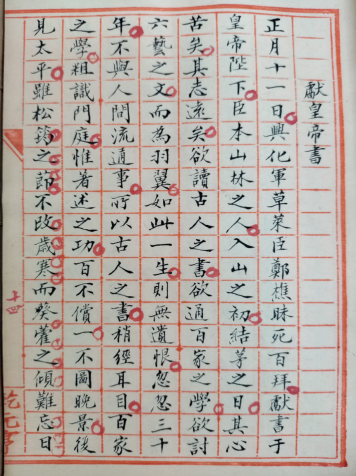 獻皇帝書
正月十一日興化軍草萊臣鄭樵昧死百拜獻書于
皇帝陛下臣本山林之人入山之初結茅之日其心
苦矣其志遠矣欲讀古人之書欲通百家之學欲討
六藝之文而為羽翼如此一生則無遺恨忽忽三十
年不與人間流通事所以古人之書稍經耳目百家
之學粗識門庭惟著述之功百不償一不圖晚景復
見太平雖松筠之節不改歲寒而葵藿之傾難忘日
十四